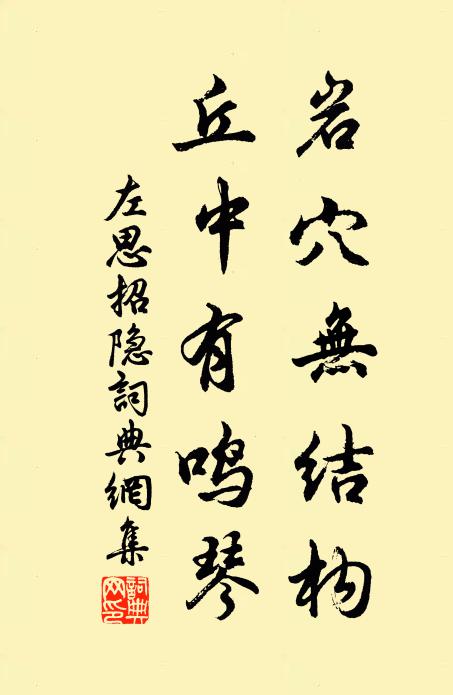 岩穴無結构
丘中有鸣琴
左思招隐詞典網集
詞典网印